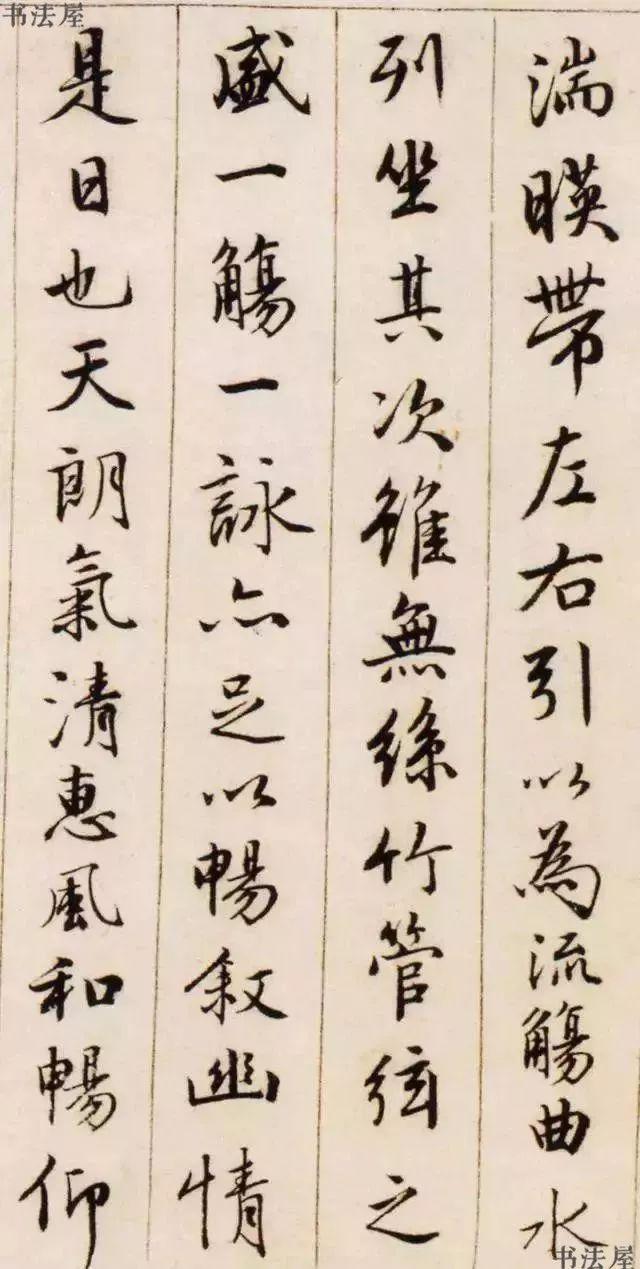 书法屋
湍暎帶左右引以為流觴曲水
列坐其次雖無絲竹管弦之
盛一觴一詠亦足以暢敘幽情
是日也天朗氣清惠風和暢仰
书法屋